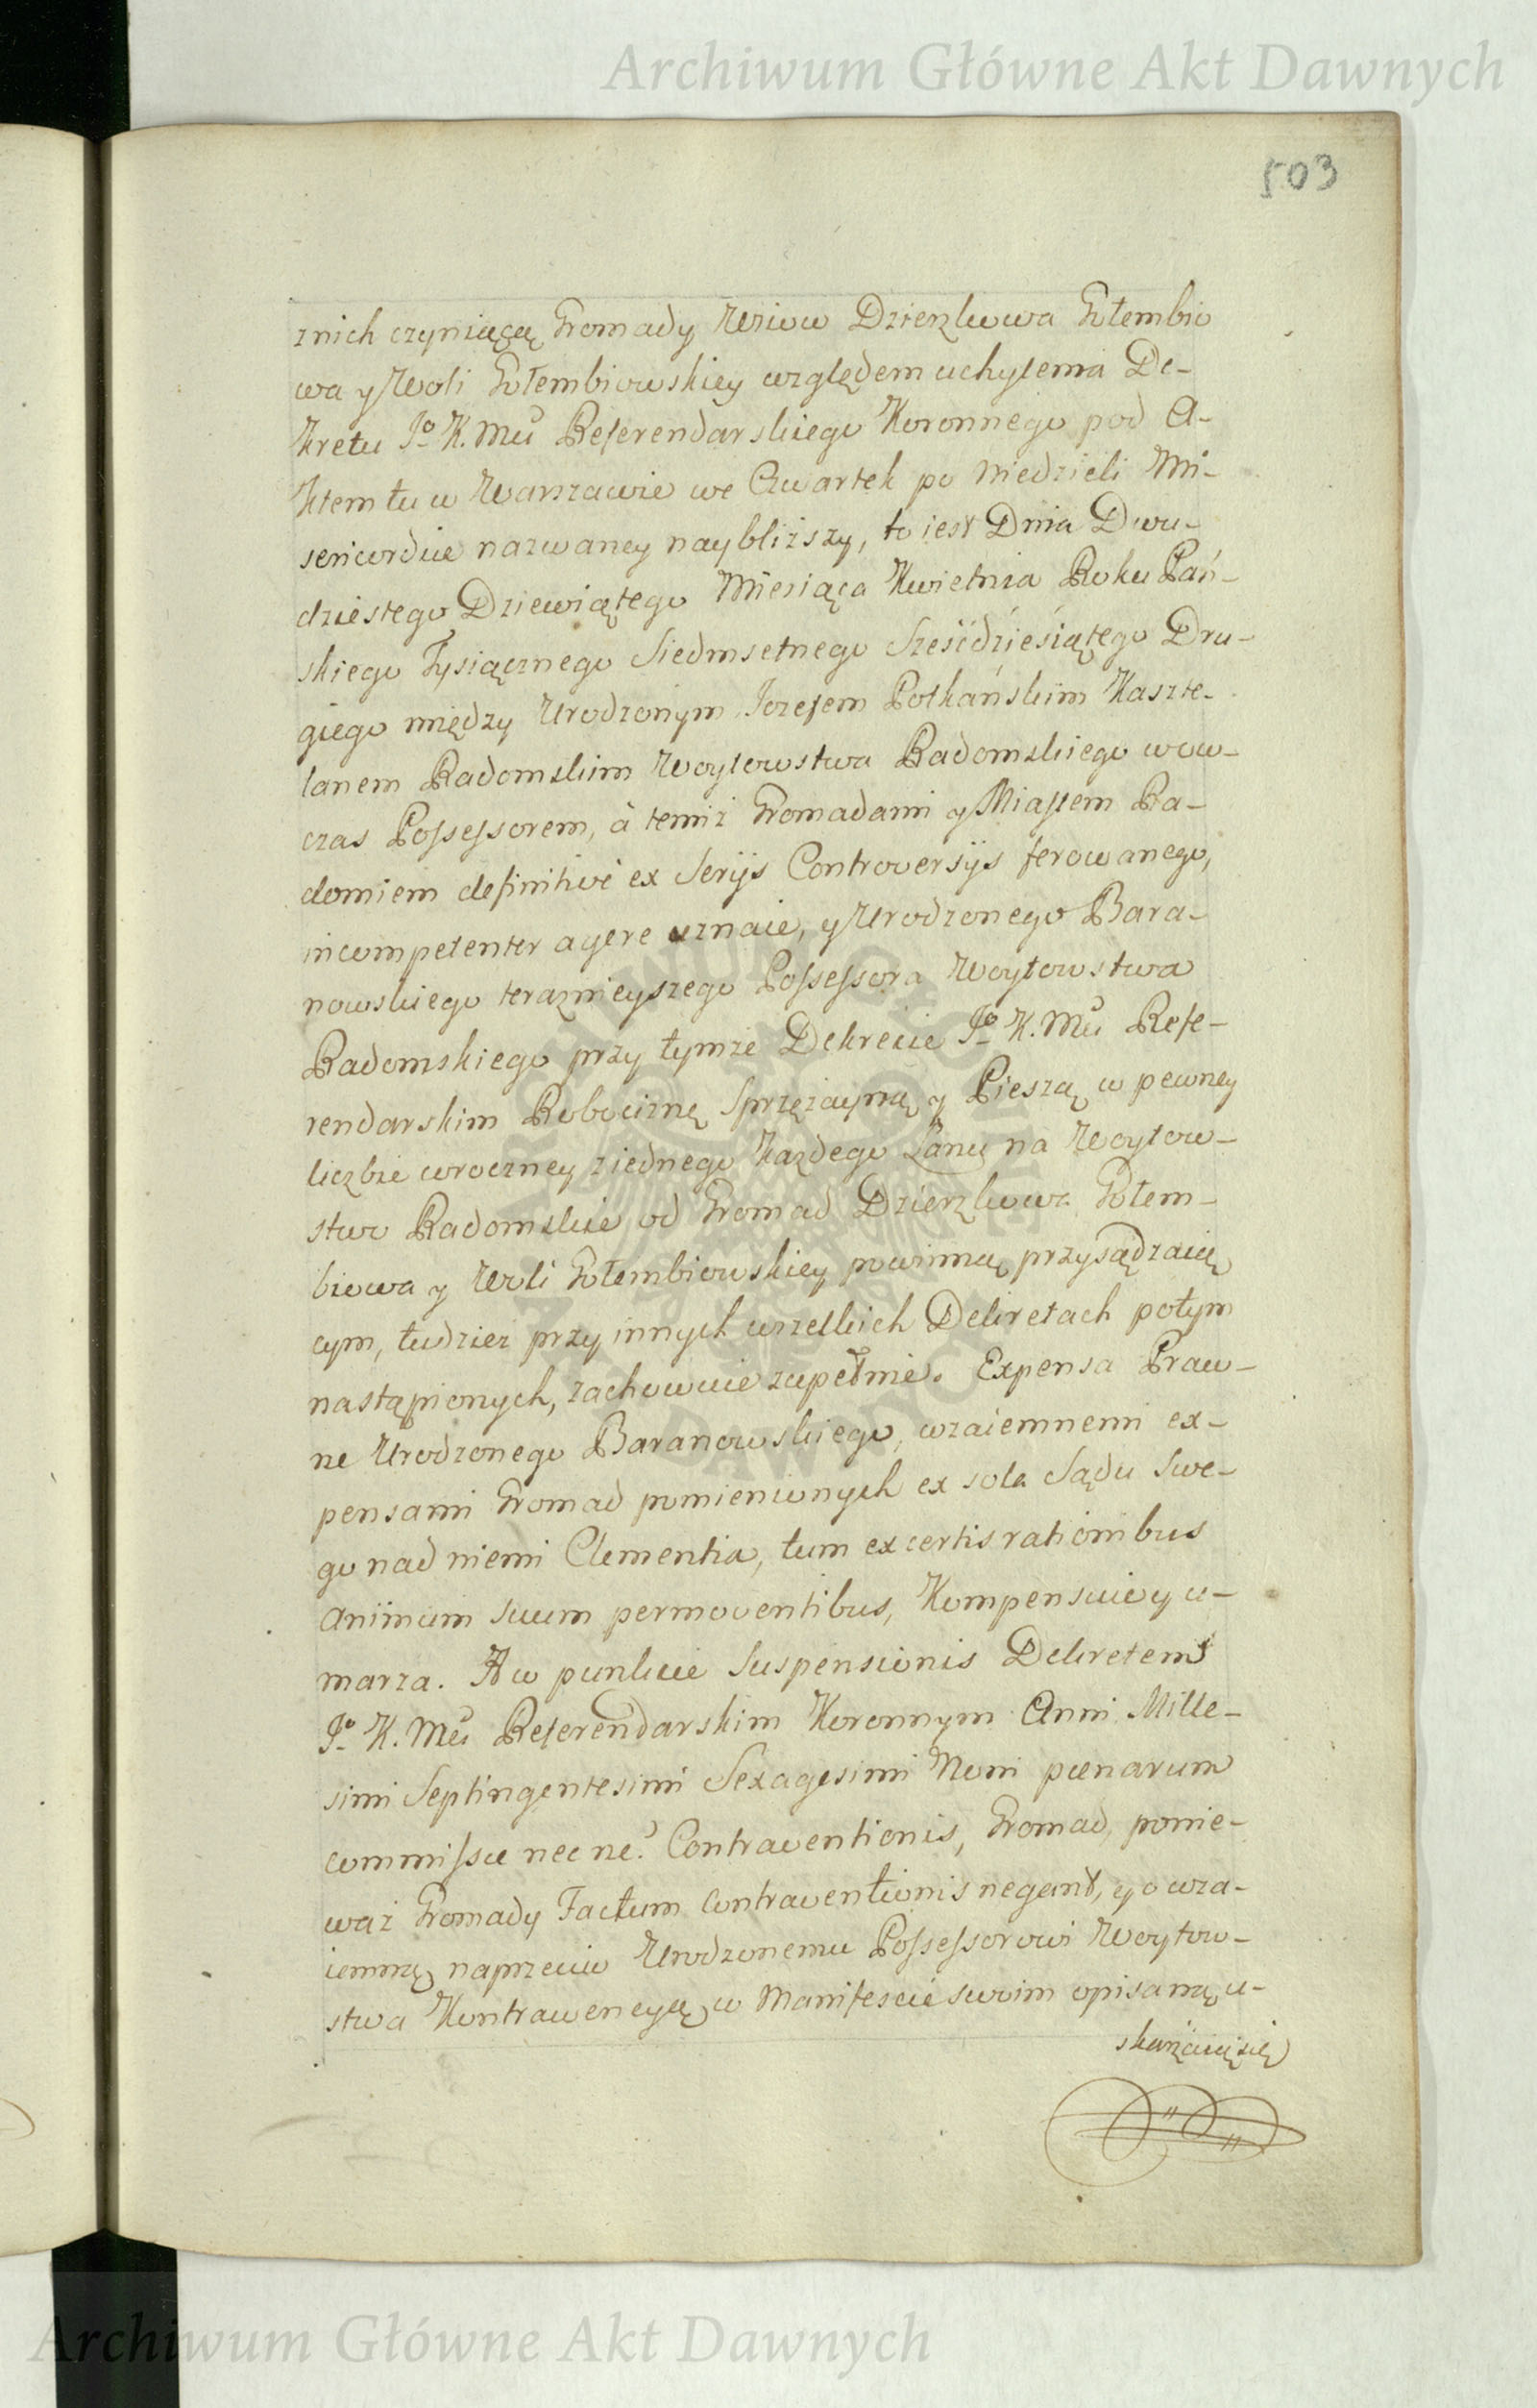 Archiwum Główne Akt Dawnych
503
znich czyniącą Gromady Wsiow Dzierzkowa Gołembio
wa y Woli Gołembiowskiey względem uchylenia De-
kretu Jº K. Mci Referendarskiego Koronnego pod A-
ktem tu w Warszawie we Czwartek po Niedzieli Mi-
sericordiæ nazwaney naybliższy, to iest Dnia Dwu-
dziestego Dziewiątego Miesiąca Kwietnia Roku Pań-
skiego Tysiącznego Siedmsetnego Sześćdziesiątego Dru-
giego między Urodzonym Jozefem Potkańskim Kaszte-
lanem Radomskim Woytowstwa Radomskiego wow-
czas Possessorem, à temiż Gromadami y Miastem Ra-
domiem definitivè ex Serijs Controversijs ferowanego,
incompetenter agere uznaie, y Urodzonego Bara-
nowskiego teraznieyszego Possessora Woytowstwa
Radomskiego przy tymże Dekrecie Jº K. Mci Refe-
rendarskim Robociznę Sprzężayną y Pieszą w pewney
liczbie wroczney ziednego Każdego Łanu na Woytow-
stwo Radomskie od Gromad Dzierzkowa Gołem-
biowa y Woli Gołembiowskiey powinną przysądzaią
cym, tudzież przy innych wszelkich Dekretach potym
nastąpionych, zachowuie zupełnie. Expensa Praw-
ne Urodzonego Baranowskiego, wzaiemnemi ex-
pensami Gromad pomienionych ex sola Sądu Swe-
go nad niemi Clementia, tum ex certis rationibus
animum suum permoventibus, Kompensuie y u-
marza. A w punkcie Suspensionis Dekretem
Jº K. Mci Referendarskim Koronnym Anni Mille-
simi Septingentesimi Sexagesimi Noni pœnarum
commissæ nec ne? Contraventionis, Gromad, ponie-
waż Gromady Factum Contraventionis negant, y o wza-
iemną naprzeciw Urodzonemu Possessorowi Woytow-
stwa Kontrawencyą w Manifeście swoim opisaną u-
skarżaią się
Archiwum Główne Akt Dawnych